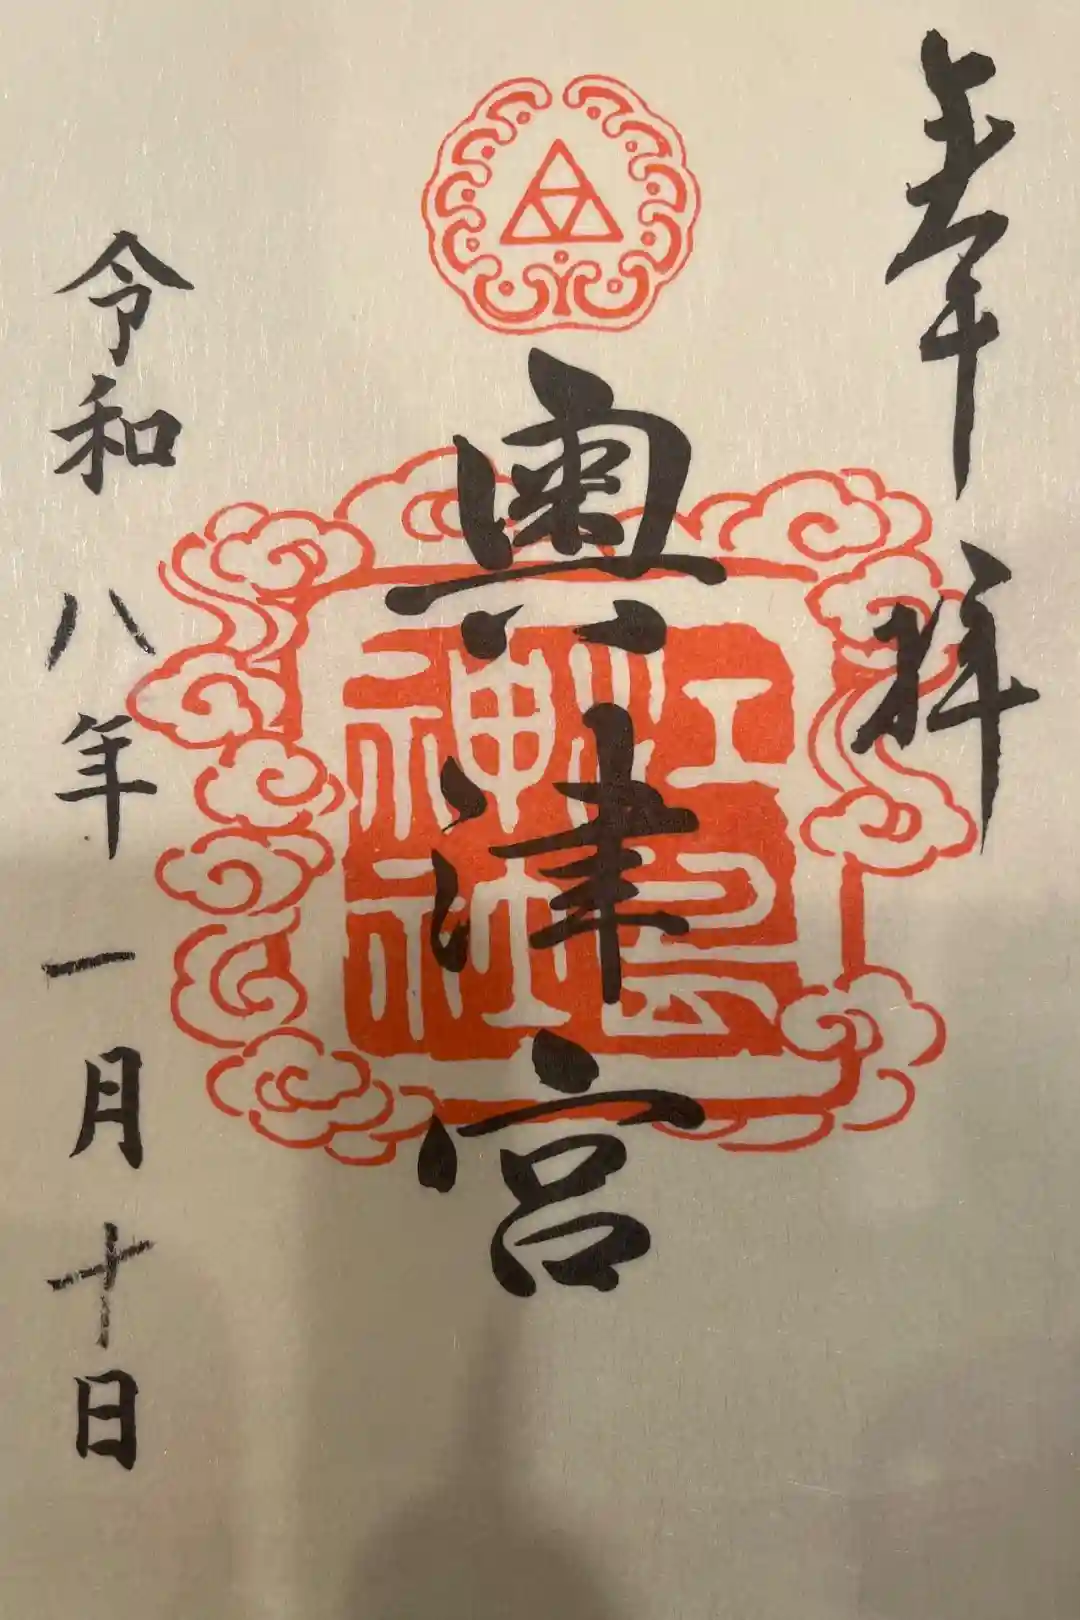 奉拝
奥津宮
江島
神社
令和八年一月十日